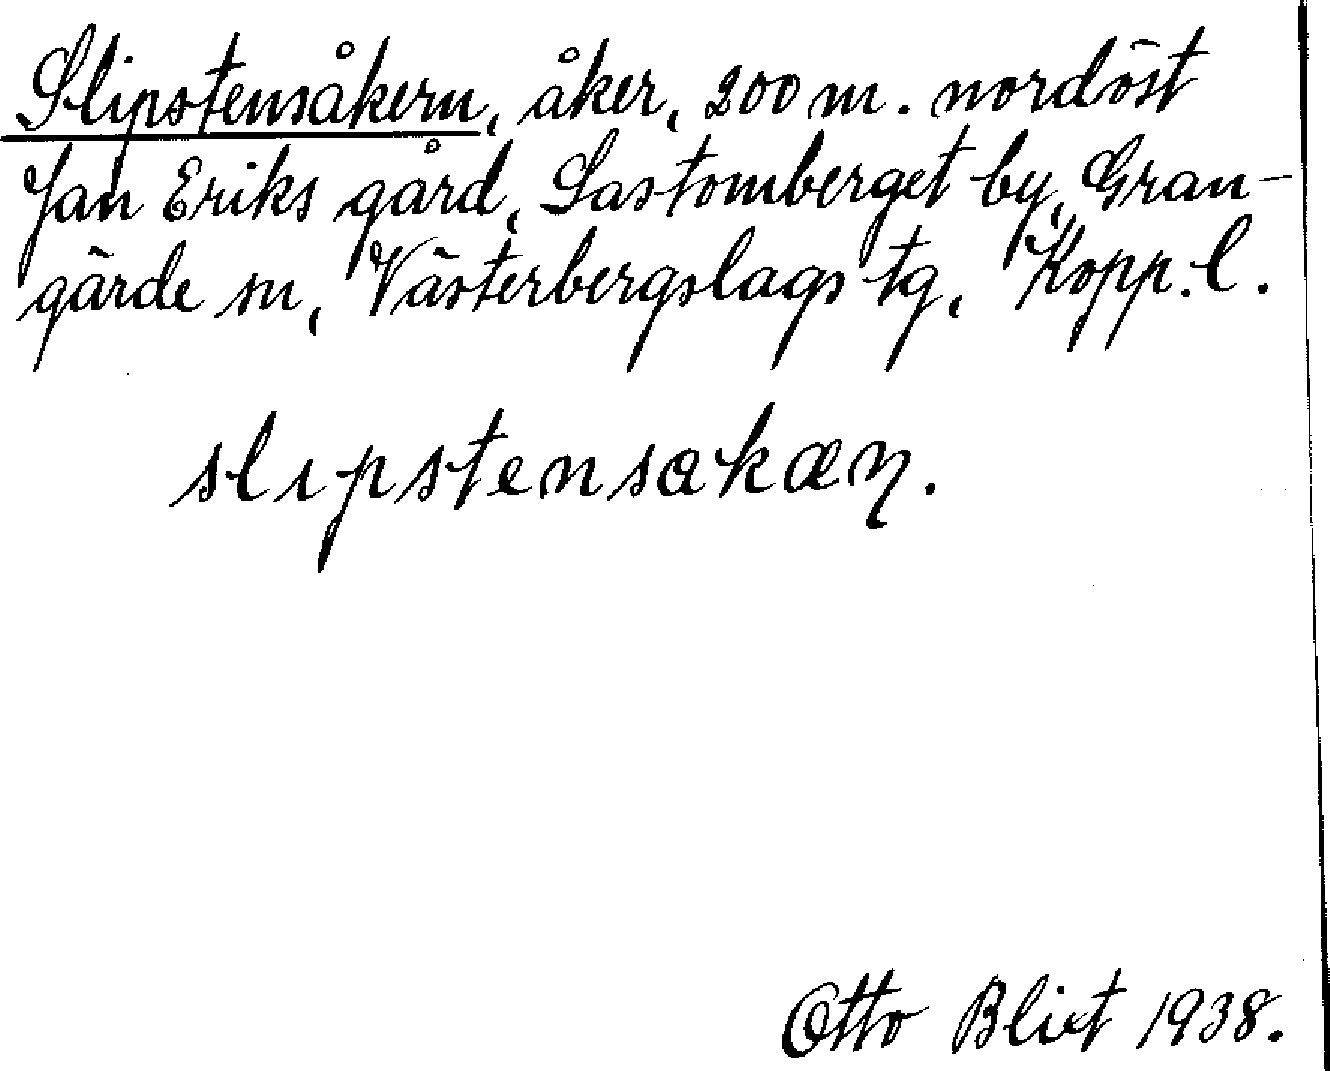 Slipstensåkern, åker, 200 m. nordöst
Jan Eriks gård, Sastomberget by, Gran-
gärde sn, Västerbergslags tg, Kopp. l.
slıpstensakæn.
Otto Blixt 1938.